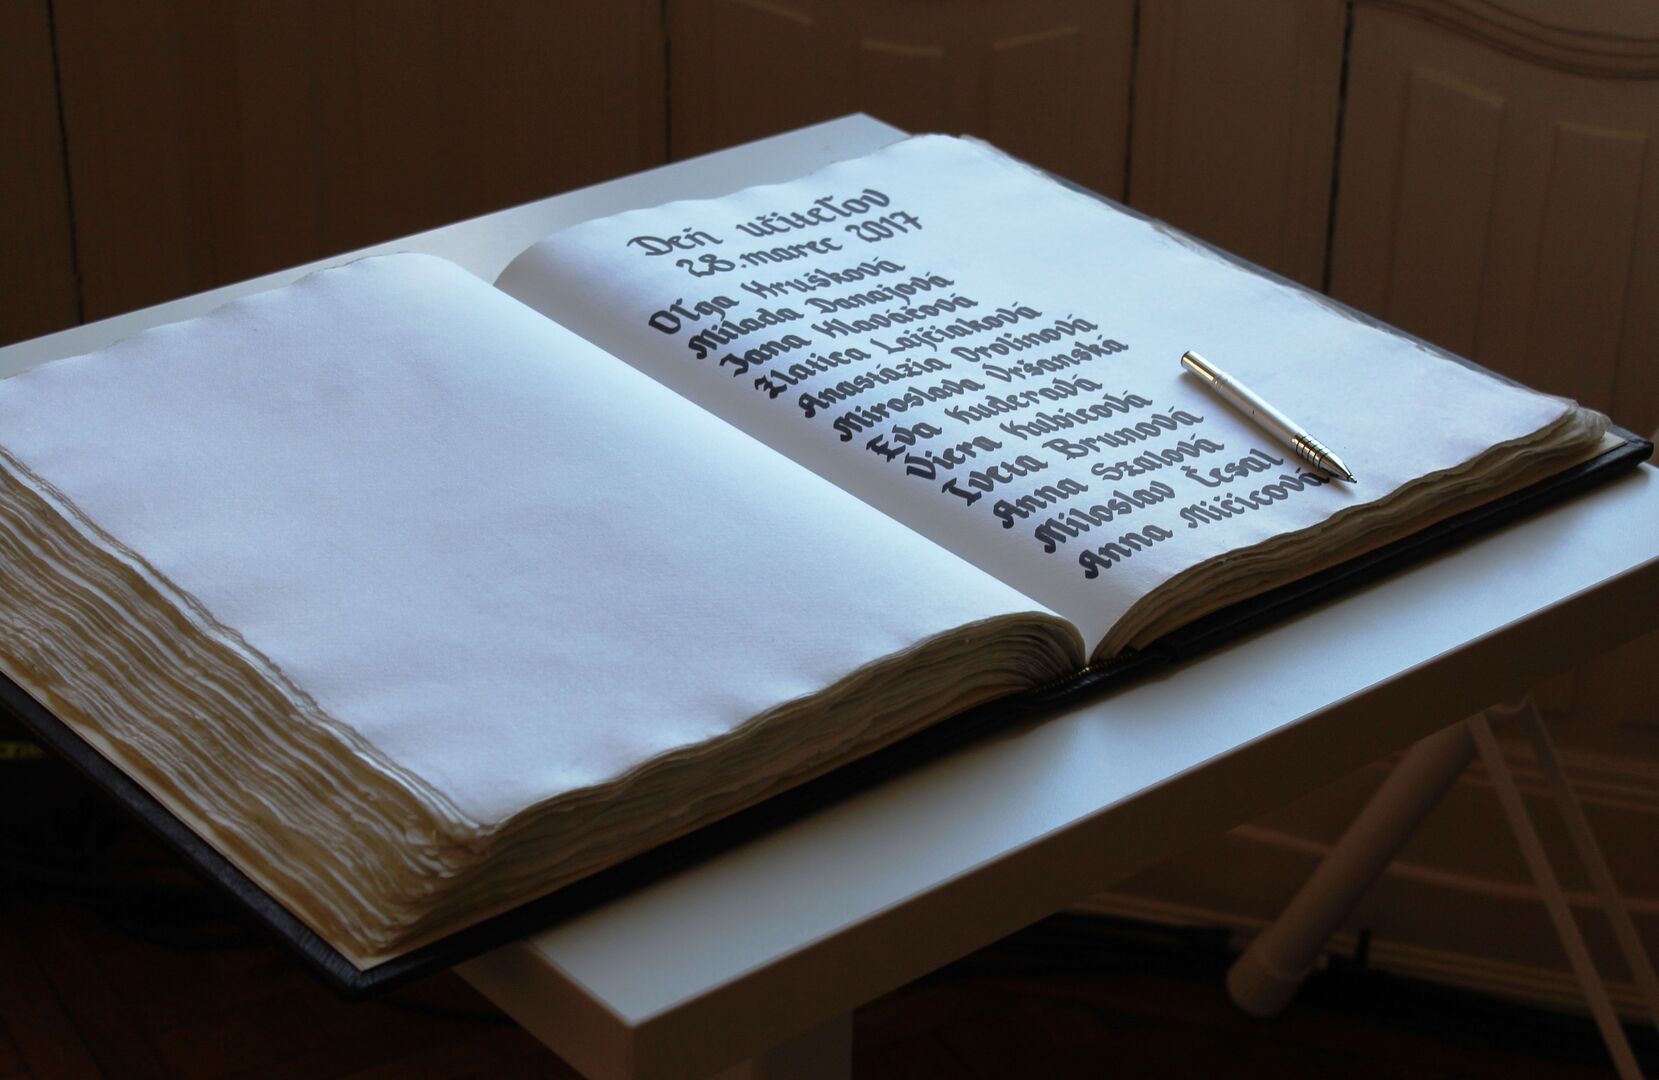 Deň učiteľov
28. marec 2017
Oľga Hrušková
Milada Danajová
Jana Hlaváčová
Zlatica Lajčiaková
Anastázia Orolínová
Miroslava Vršanská
Eva Kuderavá
Viera Kubicová
Iveta Brunová
Anna Szalová
Miloslav Česal
Anna Mičicová